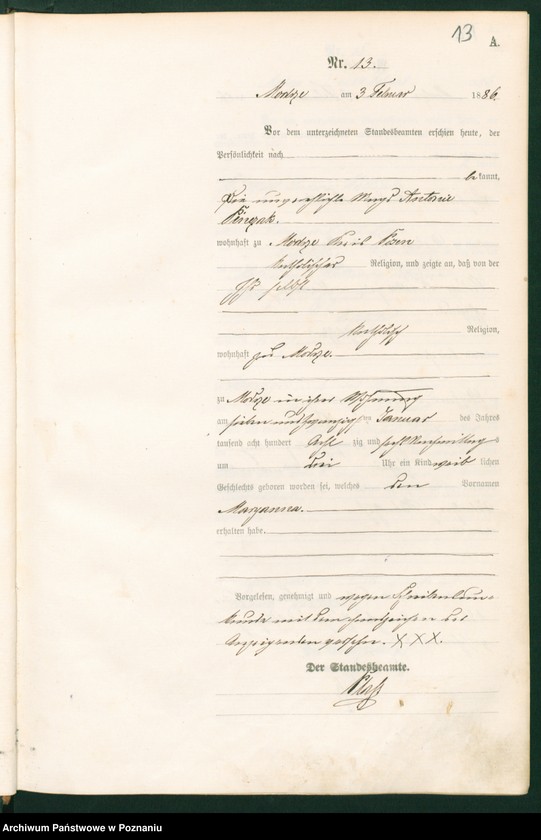 13
A.
Nr. 13.
am 3 Februar 1886.
Vor dem unterzeichneten Standesbeamten erschien heute, der
Persönlichkeit nach
bekannt,
die unverehelichte Magd Antonie
wohnhaft zu
katholischer Religion, und zeigte an, daß von der
katholisch Religion,
wohnhaft zu
zu in ihrer Wohnung
am sieben und zwanzigsten Januar des Jahres
tausend acht hundert acht zig und sechs Nachmittag
um drei Uhr ein Kind weib lichen
Geschlechts geboren worden sei, welches den Vornamen
Maryanna.
erhalten habe.
Vorgelesen, genehmigt und wegen Schreibensun-
kunde mit dem Handzeichen des
Anzeigenden versehen. XXX.
Der Standesbeamte.
Archiwum Państwowe w Poznaniu